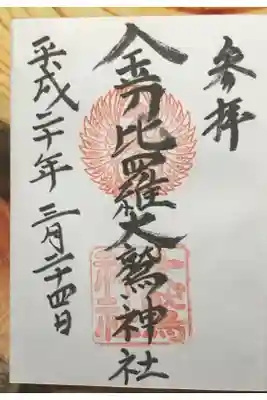 参拝
金刀比羅大鷲神社
平成二十年三月二十四日